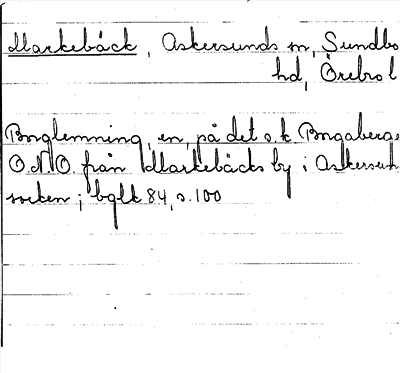 Markebäck, Askersunds sn, Sundbo
hd, Örebro l
Borglemning, en, på det s.k Borgaberge
O.N.O. från Markebäcks by i Askersun
socken; bglk 84, s.100